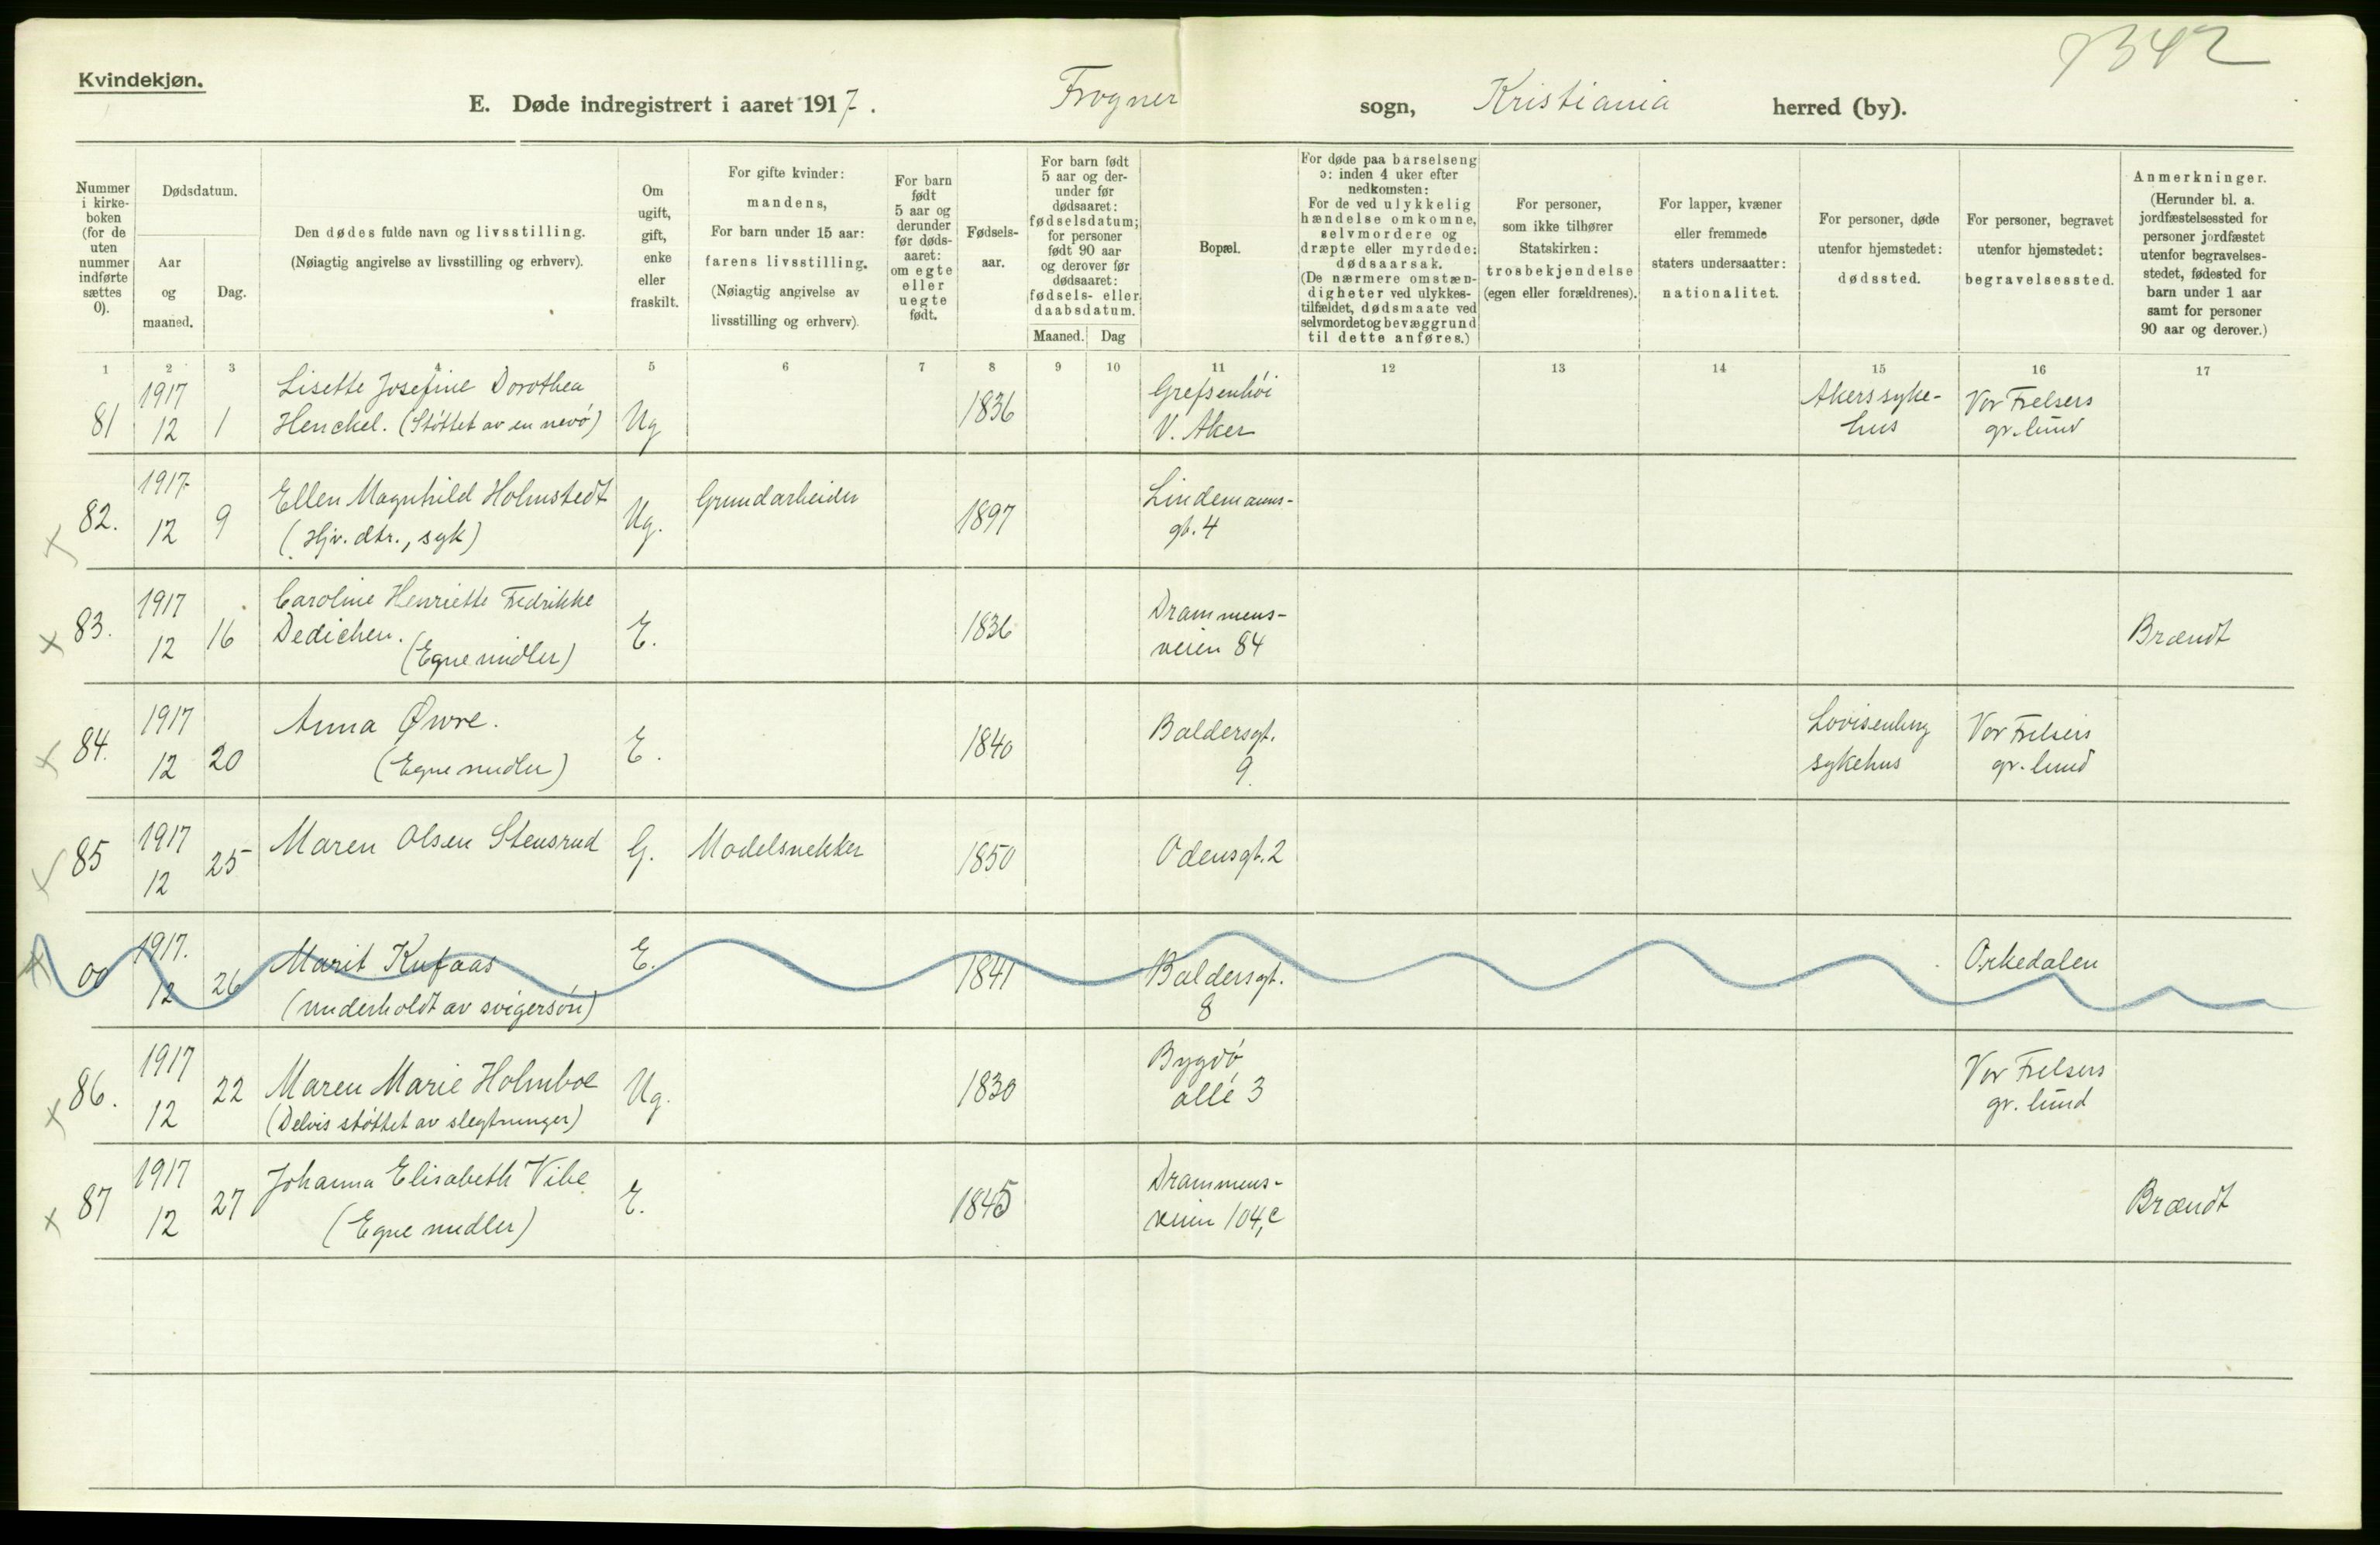 7342
Kvindekjøn.
E. Døde indregistrert i aaret 1917. Frogner sogn, Kristiania herred (by).
Nummer
i kirke-
boken
(for de
uten
nummer
indførte
sættes
0).
Dødsdatum.
Aar
og
maaned.
Dag.
Den dødes fulde navn og livsstilling.
(Nøiagtig angivelse av livsstilling og erhverv).
Om
ugift,
gift,
enke
eller
fraskilt.
For gifte kvinder:
mandens,
For barn under 15 aar:
farens livsstilling.
(Nøiagtig angivelse av
livsstilling og erhverv).
For barn
født
5 aar og
derunder
før døds-
aaret:
om egte
eller
uegte
født.
Fødsels-
aar.
For barn født
5 aar og der-
under før
dødsaaret:
fødselsdatum;
for personer
født 90 aar
og derover før
dødsaaret:
fødsels- eller
daabsdatum.
Maaned. Dag
Bopæl.
For døde paa barselseng
ɔ: inden 4 uker efter
nedkomsten:
For de ved ulykkelig
hændelse omkomne,
selvmordere og
dræpte eller myrdede:
dødsaarsak.
(De nærmere omstæn-
digheter ved ulykkes-
tilfældet, dødsmaate ved
selvmord et og bevæggrund
til dette anføres.)
For personer,
som ikke tilhører
Statskirken:
trosbekjendelse
(egen eller forældrenes).
For lapper, kvæner
eller fremmede
staters undersaatter:
nationalitet.
For personer, døde
utenfor hjemstedet:
dødssted.
For personer, begravet
utenfor hjemstedet:
begravelsessted.
Anmerkninger.
(Herunder bl. a.
jordfæstelsessted for
personer jordfæstet
utenfor begravelses-
stedet, fødested for
barn under 1 aar
samt for personer
90 aar og derover.)
1 2 3 4 5 6 7 8 9 10 11 12 13 14 15 16 17
1917 Lisette Josefine Dorothea Grefsenhøi Akers syke- Vor Frelsers
81 12 1 Henckel. (Støttet av en nevø) Ug 1836 V. Aker hus gr.lund
1917 Ellen Magnhild Holmstedt Grundarbeider Lindemanns-
x 82. 12 9 (Hjv. dtr., syk) Ug. 1897 gt. 4
1917 Caroline Henriette Fredrikke Drammens-
x 83. 12 16 Dedichen. (Egne midler) E. 1836 veien 84 Brændt
1917 Anna Øvre. Baldersgt. Lovisenberg Vor Frelsers
x 84. 12 20 (Egne midler) E. 1840 9. sykehus gr. lund
1917 Maren Olsen Stensrud G. Modelsnekker Odensgt. 2
x 85 12 25 1850
1917. Marit Kufaas E. 1841 Baldersgt. Orkedalen
x 00 12 26 (underholdt av svigersøn) 8
1917 Maren Marie Holmboe Bygdø Vor Frelsers
x 86. 12 22 (Delvis støttet av slegtninger) Ug. 1830 allé 3 gr. lund
1917 Johanna Elisabeth Vibe Drammens-
x 87 12 27 (Egne midler) E. 1845 veien 104,c Brændt